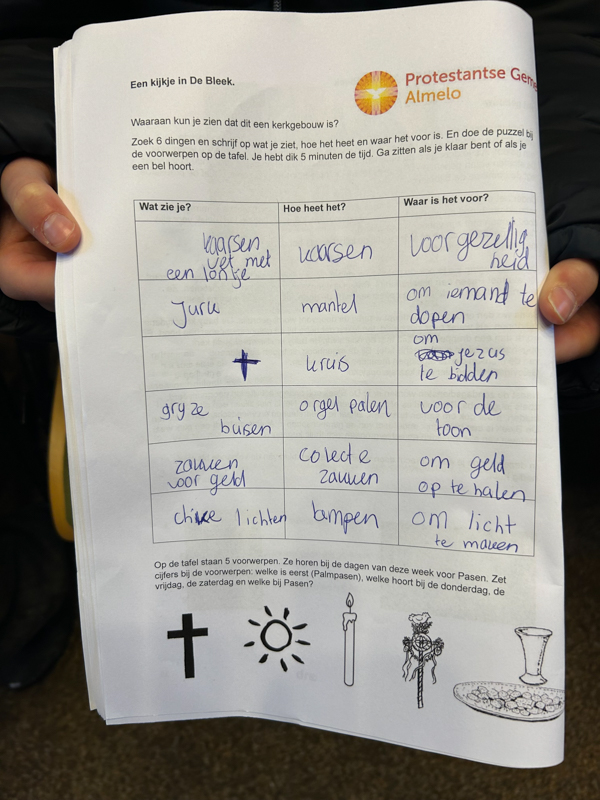 Een kijkje in De Bleek.
Protestantse Geme
Almelo
Waaraan kun je zien dat dit een kerkgebouw is?
Zoek 6 dingen en schrijf op wat je ziet, hoe het heet en waar het voor is. En doe de puzzel bij
de voorwerpen op de tafel. Je hebt dik 5 minuten de tijd. Ga zitten als je klaar bent of als je
een bel hoort.
Wat zie je? Hoe heet het? Waar is het voor?
kaarsen
vet met
een lontje
kaarsen
voor gezellig
heid
Jurk
mantel
om iemand te
dopen
kruis
om
jezus
te bidden
gryze
buisen
orgel palen
voor de
toon
zakken
voor geld
colecte
zakken
om geld
op te halen
lichten
lampen
om licht
te maken
Op de tafel staan 5 voorwerpen. Ze horen bij de dagen van deze week voor Pasen. Zet
cijfers bij de voorwerpen: welke is eerst (Palmpasen), welke hoort bij de donderdag, de
vrijdag, de zaterdag en welke bij Pasen?